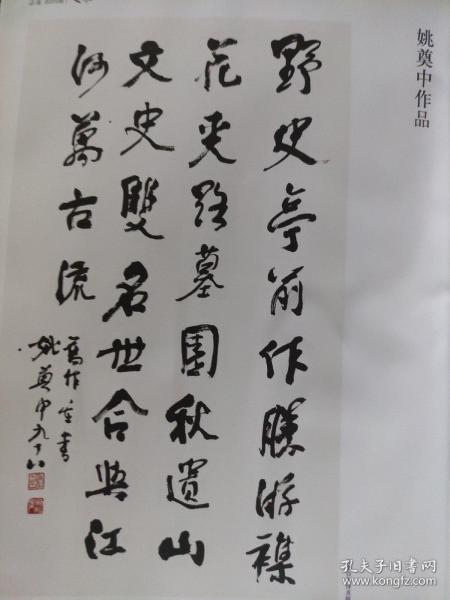 姚奠中作品
野史亭前作勝游襍
花夾路墓園秋遺山
文史雙名世合與江
河萬古流
舊作重書
姚奠中九十八
孔夫子旧书网
www.kongfz.com